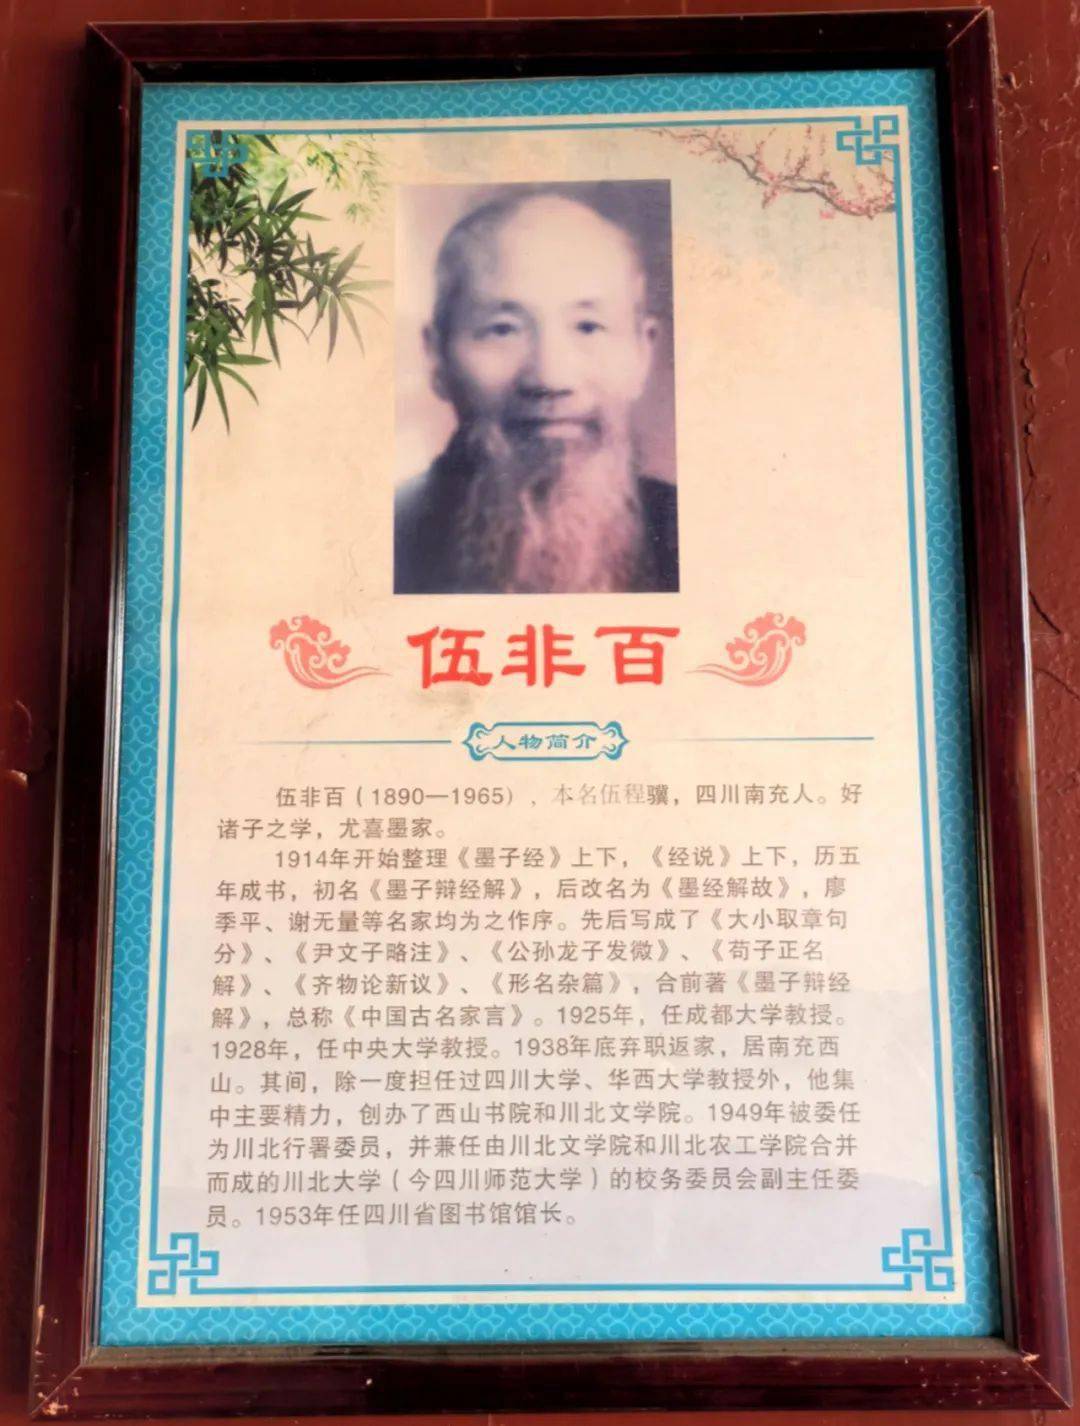 伍非百
人物简介
伍非百（1890—1965），本名伍程骥，四川南充人。好
诸子之学，尤喜墨家。
1914年开始整理《墨子经》上下，《经说》上下，历五
年成书，初名《墨子辩经解》，后改名为《墨经解故》，廖
季平、谢无量等名家均为之作序。先后写成了《大小取章句
分》、《尹文子略注》、《公孙龙子发微》、《荀子正名
解》、《齐物论新议》、《形名杂篇》，合前著《墨子辩经
解》，总称《中国古名家言》。1925年，任成都大学教授。
1928年，任中央大学教授。1938年底弃职返家，居南充西
山。其间，除一度担任过四川大学、华西大学教授外，他集
中主要精力，创办了西山书院和川北文学院。1949年被委任
为川北行署委员，并兼任由川北文学院和川北农工学院合并
而成的川北大学（今四川师范大学）的校务委员会副主任委
员。1953年任四川省图书馆馆长。